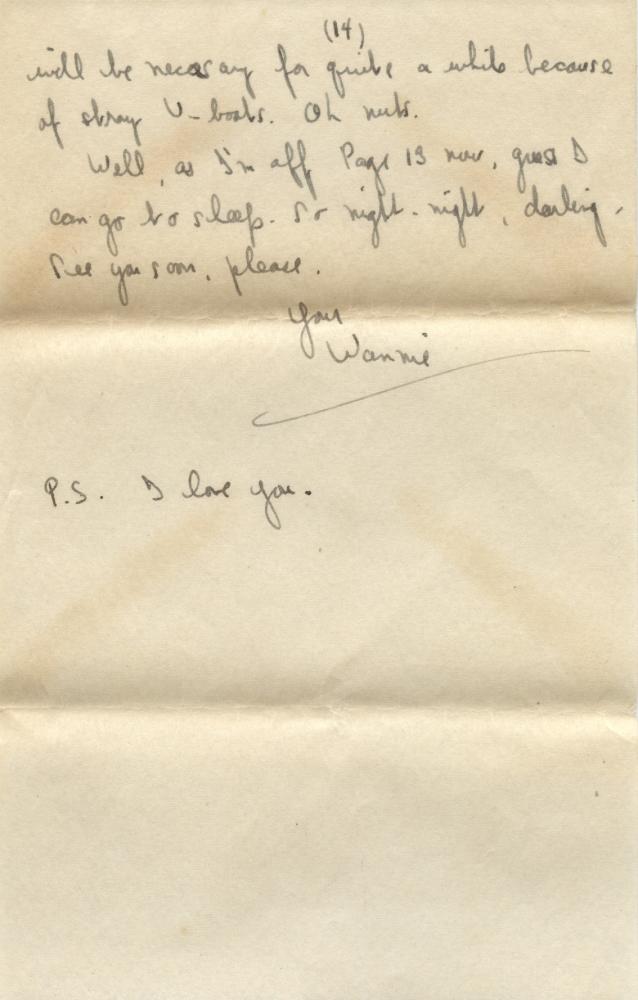 (14)
will be necessary for quite a while because
of stray U-boats. Oh nuts.
Well, as I'm off Page 13 now, guess I
can go to sleep. So night-night, darling.
See you soon, please.
Your
Wannie
P.S. I love you.